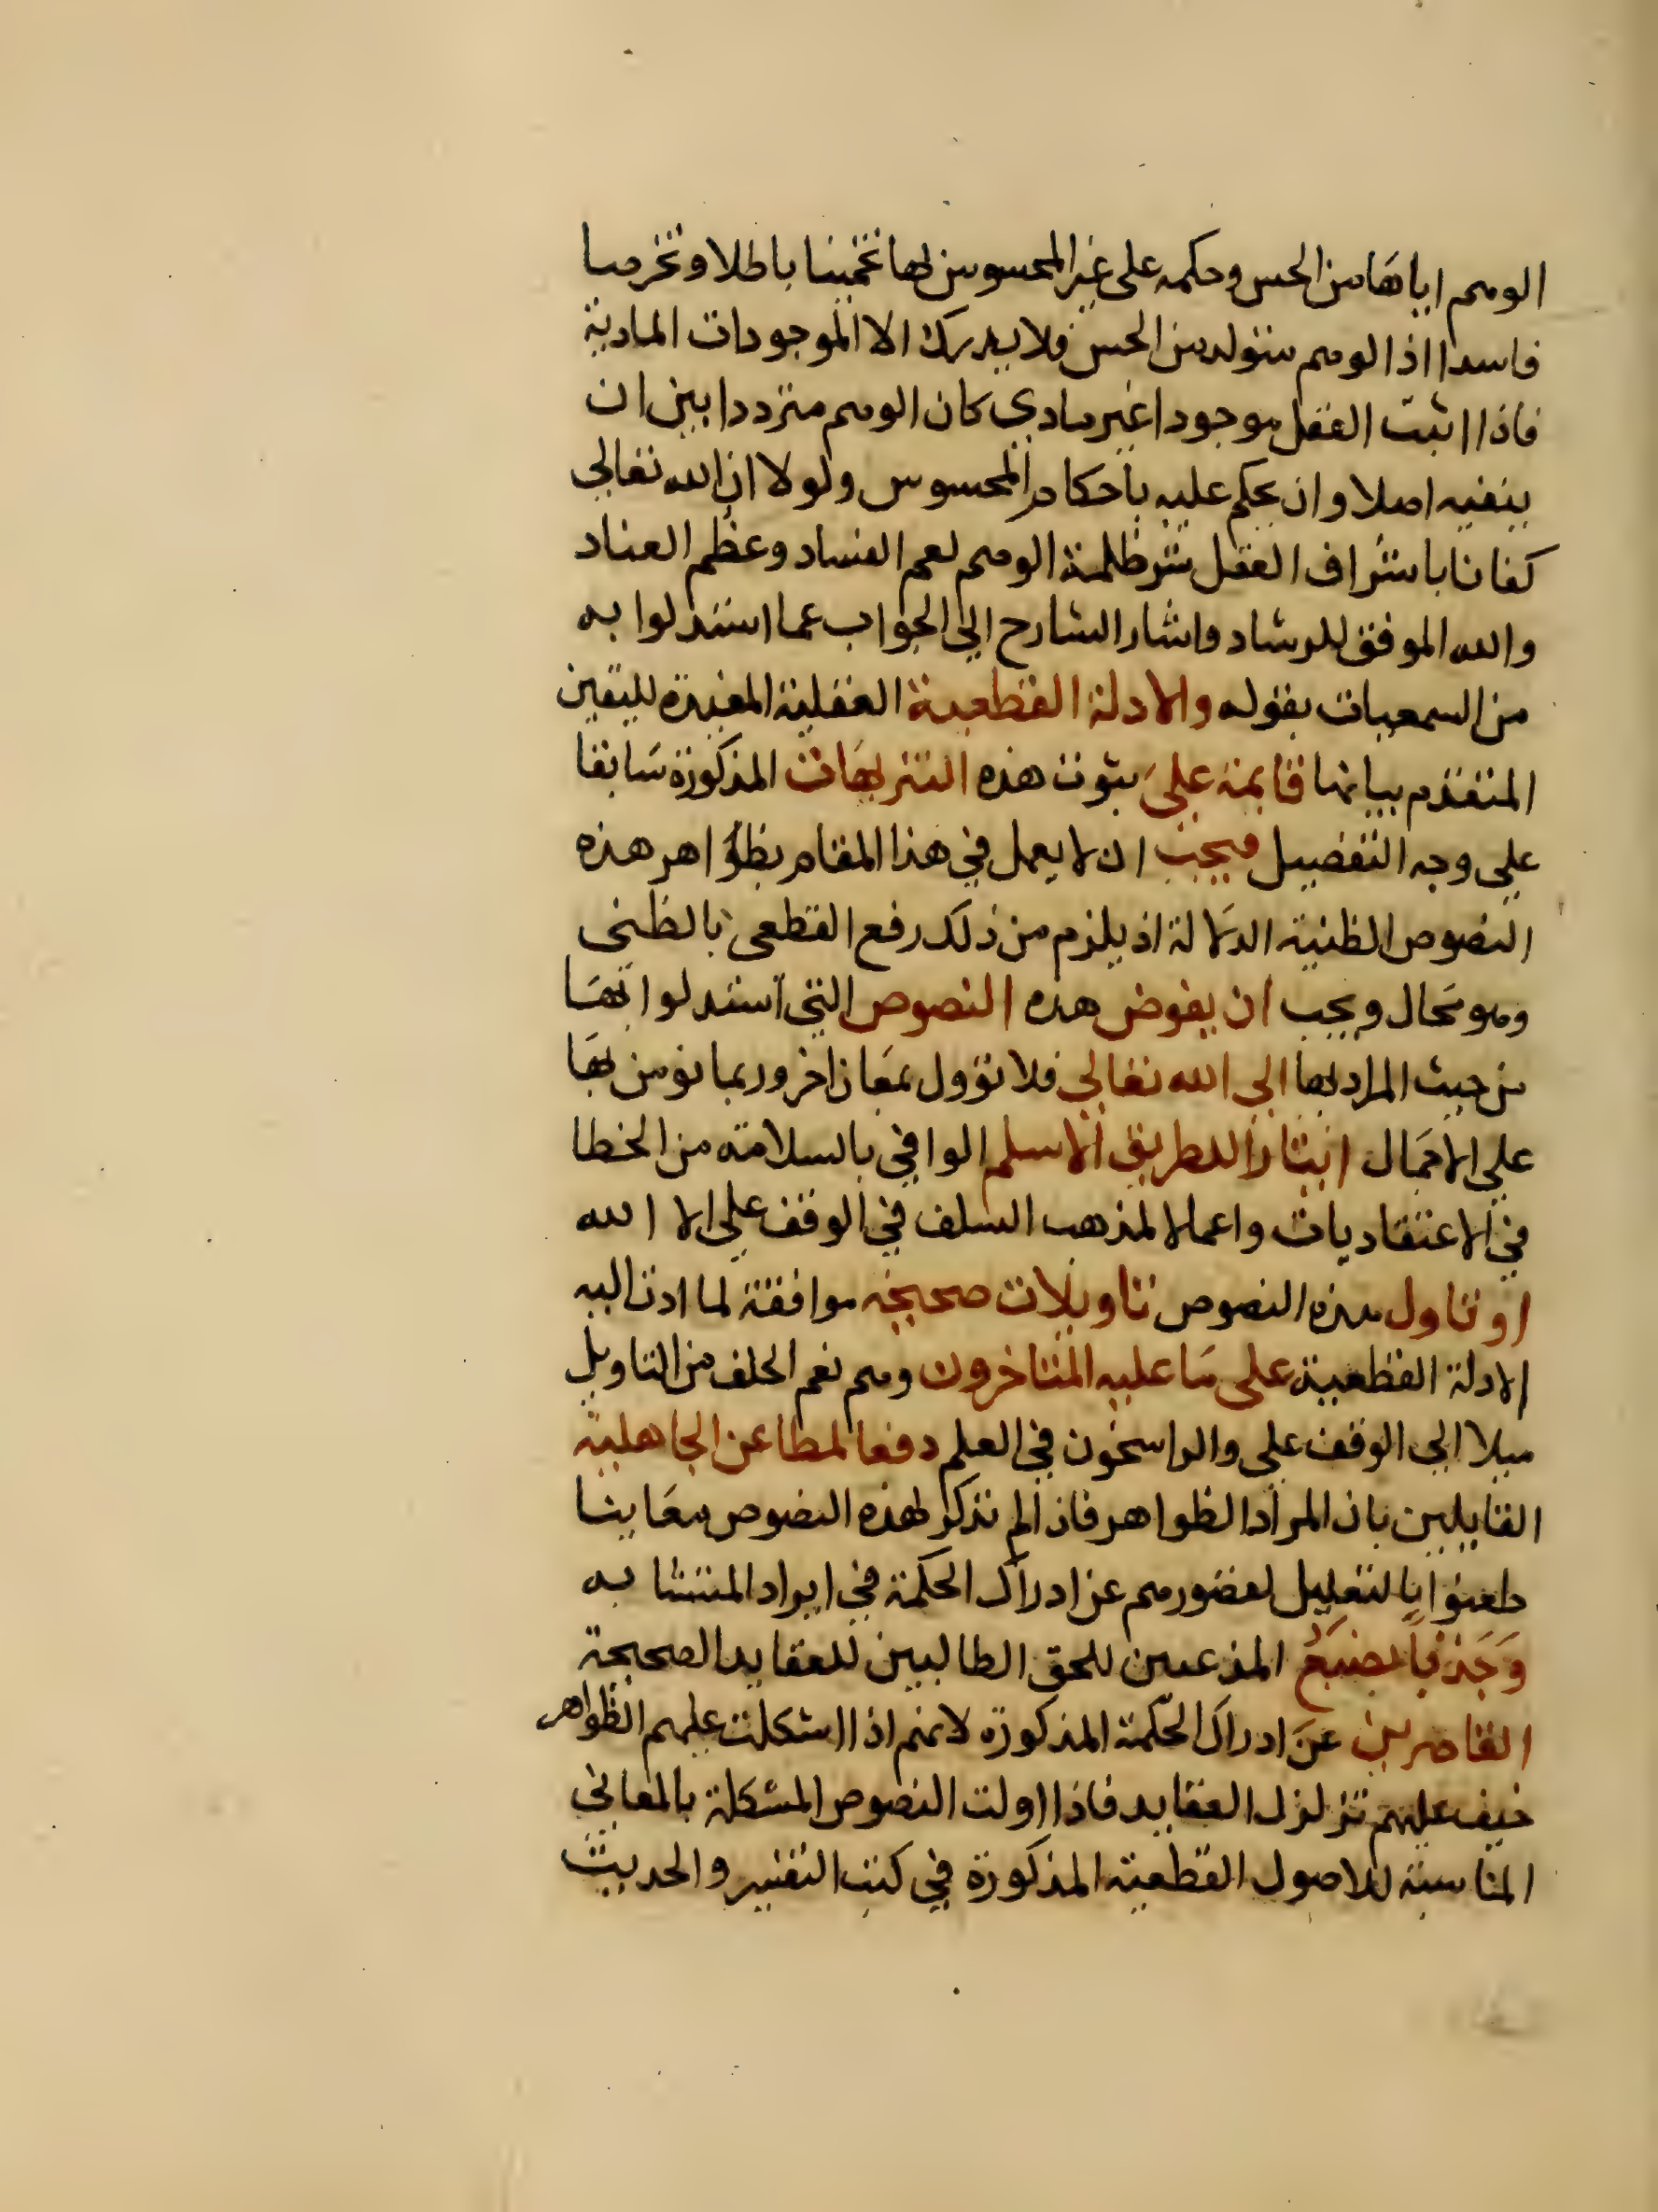 الوهم اياها من الحس وحكمه على غير المحسوس بها تخمينا باطلا وتخرصا
فاسدا اذ الوهم متولد من الحس فلا يدرك الا الموجودات المادية
فاذا اثبت العقل موجودا غير مادي كان الوهم مترددا بين ان
ينفيه اصلا وان يحكم عليه باحكام المحسوس ولولا ان الله تعالى
كفانا باشراف العقل شر ظلمة الوهم لعم الفساد وعظم العناد
والله الموفق للرشاد واشار الشارح الى الجواب عما استدلوا به
من السمعيات بقوله والادلة القطعية العقلية المفيدة لليقين
المتقدم بيانها قايمة على ثبوت هذه التنزيهات المذكورة سابقا
على وجه التفصيل فيجب ان لا يعمل في هذا المقام بظواهر هذه
النصوص الظنية الدلالة اذ يلزم من ذلك رفع القطعي بالظني
وهو محال ويجب ان يفوض هذه النصوص التي استدلوا بها
من حيث المراد بها الى الله تعالى فلا تؤول بمعان اخر وربما نومن بها
على الاجمال ايثارا للطريق الاسلم الوافي بالسلامة من الخطا
في الاعتقاديات واعمالا لمذهب السلف في الوقف على الا الله
او تاول هذه النصوص تاويلات صحيحة موافقة لما ادت اليه
الادلة القطعية على ما عليه المتاخرون وهم نعم الخلف من التاويل
ميلا الى الوقف على والراسخون في العلم دفعا لمطاعن الجاهلية
القايلين بان المراد الظواهر فاذا لم نذكر لهذه النصوص معاينا
طعنوا بالتعليل لقصورهم عن ادراك الحكمة في ايراد المتشابه
وَجَذبا بضبع المذعنين للحق الطالبين للعقايد الصحيحة
القاصرين عن ادراك الحكمة المذكورة لانهم اذا اشكلت عليهم الظواهر
خيف عليهم تزلزل العقايد فاذا اولت النصوص المشكلة بالمعاني
المناسبة للاصول القطعية المذكورة في كتب التفسير والحديث